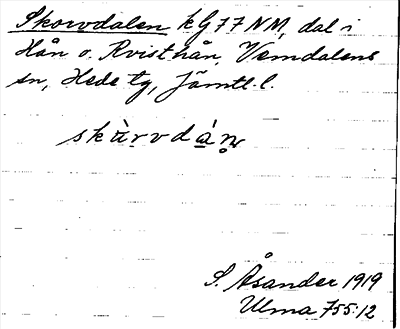 Skorvdalen k G 77 NM, dal i
Hån o. Kvisthån, Vemdalens
sn, Hede tg, Jämtl. l.
skàrvdàn̥
S. Åsander 1919
Ulma 755:12